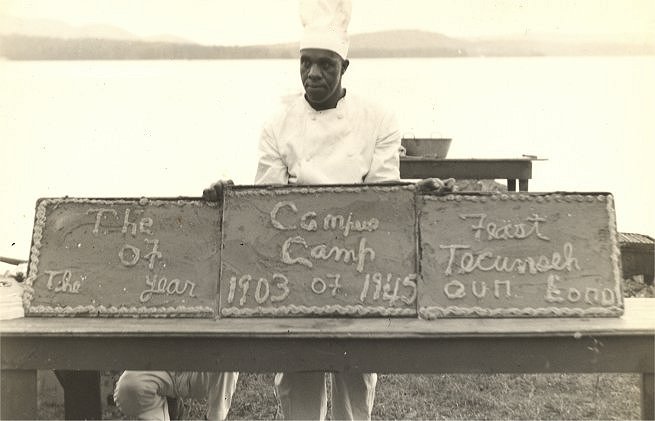 The Campus Feast
Of Camp Tecumseh
The Year 1903 of 1945 our Lord